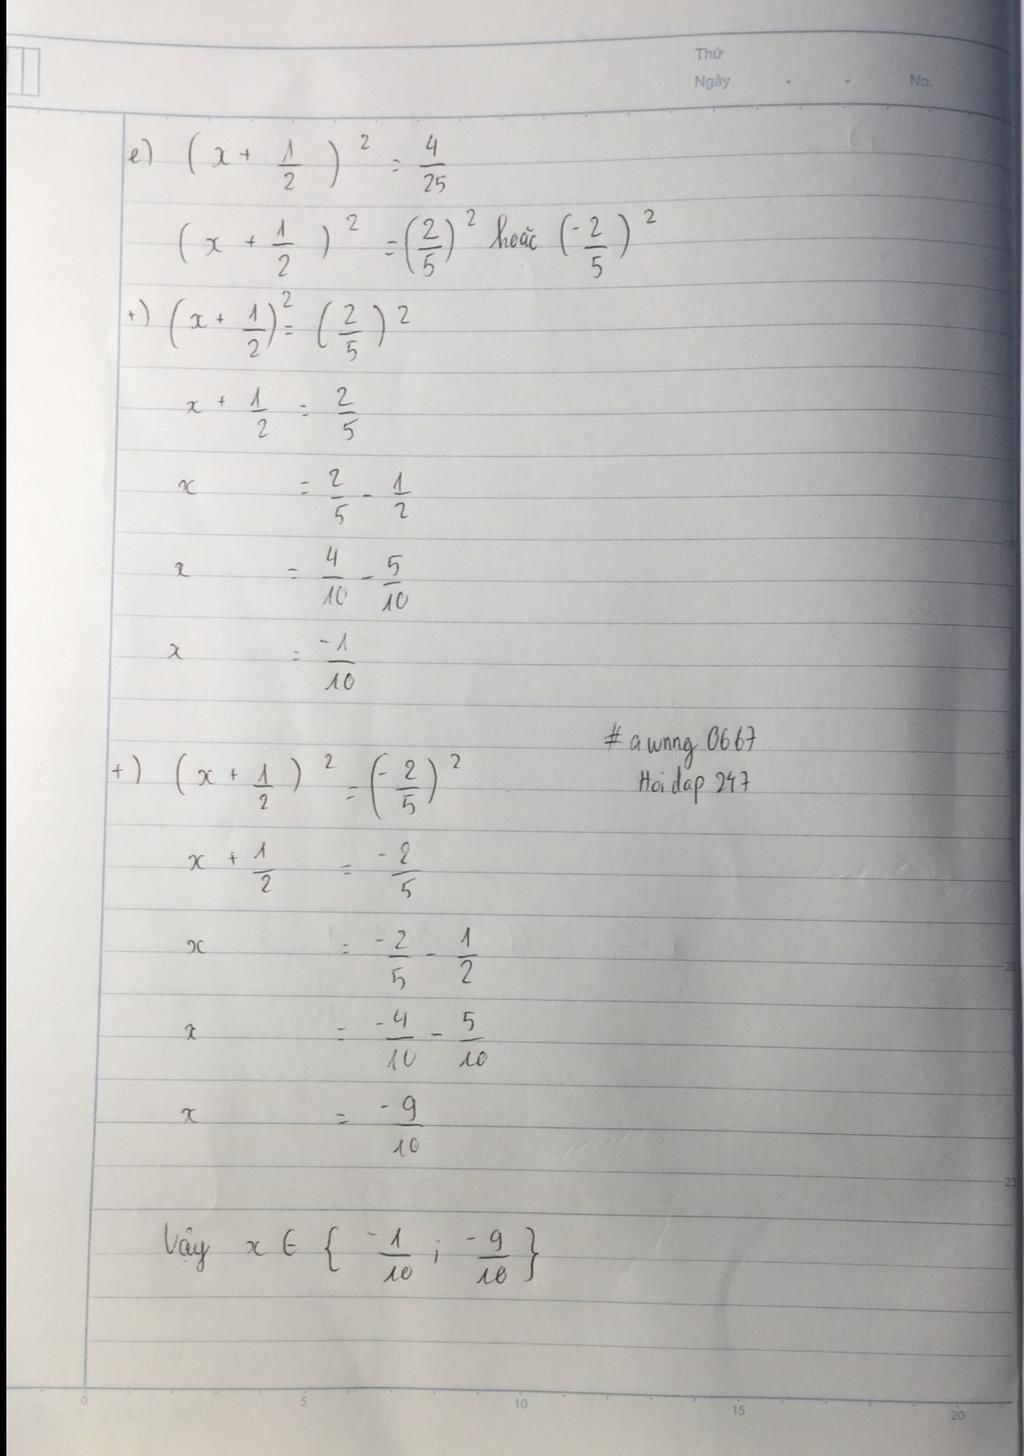 Thứ
Ngày . . No.
e) (x + 1/2)² = 4/25
(x + 1/2)² = (2/5)² hoặc (-2/5)²
+) (x + 1/2)² = (2/5)²
x + 1/2 = 2/5
x = 2/5 - 1/2
x = 4/10 - 5/10
x = -1/10
# awnng 0667
Hoidap 247
+) (x + 1/2)² = (-2/5)²
x + 1/2 = -2/5
x = -2/5 - 1/2
x = -4/10 - 5/10
x = -9/10
Vậy x ∈ { -1/10 ; -9/10 }
0 5 10 15 20